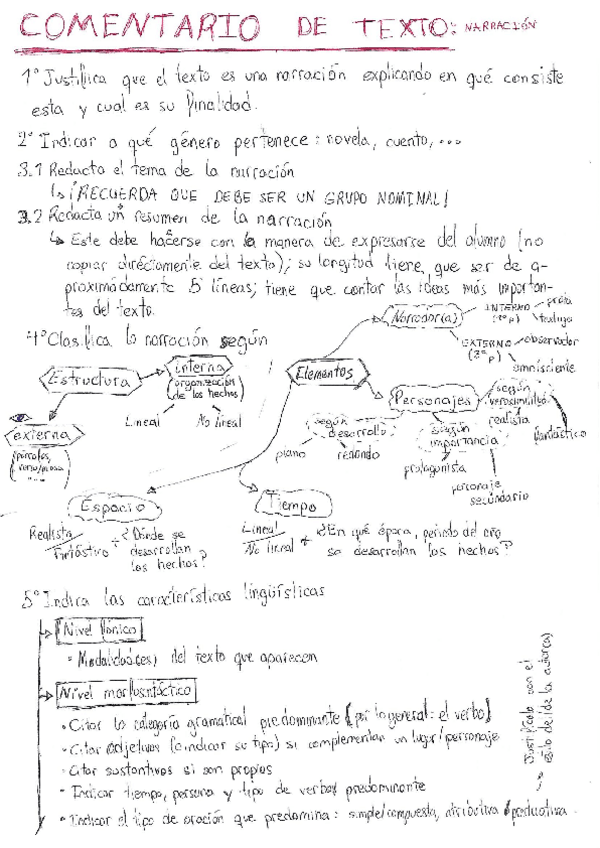 COMENTARIO DE TEXTO: NARRACIÓN
1º Justifica que el texto es una narración explicando en qué consiste
esta y cual es su finalidad.
2º Indicar a qué género pertenece: novela, cuento, ...
3.1 Redacta el tema de la narración
↳ ¡RECUERDA QUE DEBE SER UN GRUPO NOMINAL!
3.2 Redacta un resumen de la narración
↳ Este debe hacerse con la manera de expresarse del alumno (no
copiar directamente del texto); su longitud tiene que ser de a-
proximadamente 5 líneas; tiene que contar las ideas más importan-
tes del texto.
4º Clasifica la narración según
Estructura
interna
(organización
de los hechos)
Lineal
No lineal
externa
(párrafos,
Elementos
Narrador(a)
INTERNO
(1ª p)
prota
testigo
EXTERNO
(3ª p)
observador
omnisciente
Personajes
según
desarrollo
plano
redondo
según
importancia
protagonista
personaje
secundario
según
verosimilitud
realista
fantástico
Espacio
Realista
Fantástico
+
¿Dónde se
desarrollan
los hechos?
Tiempo
Lineal
No lineal
+
¿En qué época, periodo del año
se desarrollan los hechos?
5º Indica las características lingüísticas
Nivel fónico
• Modalidad(es) del texto que aparecen
Nivel morfosintáctico
• Citar la categoría gramatical predominante (por lo general: el verbo)
• Citar adjetivos (e indicar su tipo) si complementan un lugar/personaje
• Citar sustantivos si son propios
• Indicar tiempo, persona y tipo de verbos predominante
• Indicar el tipo de oración que predomina: simple/compuesta, atributiva/predicativa
Justifícalo con el
estilo del/de la autor(a)